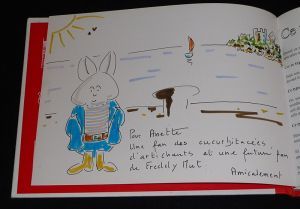 Pour Anette
Une fan des cucurbitacées
d'artichauts et une future fan
de Freddy Mut
Amicalement